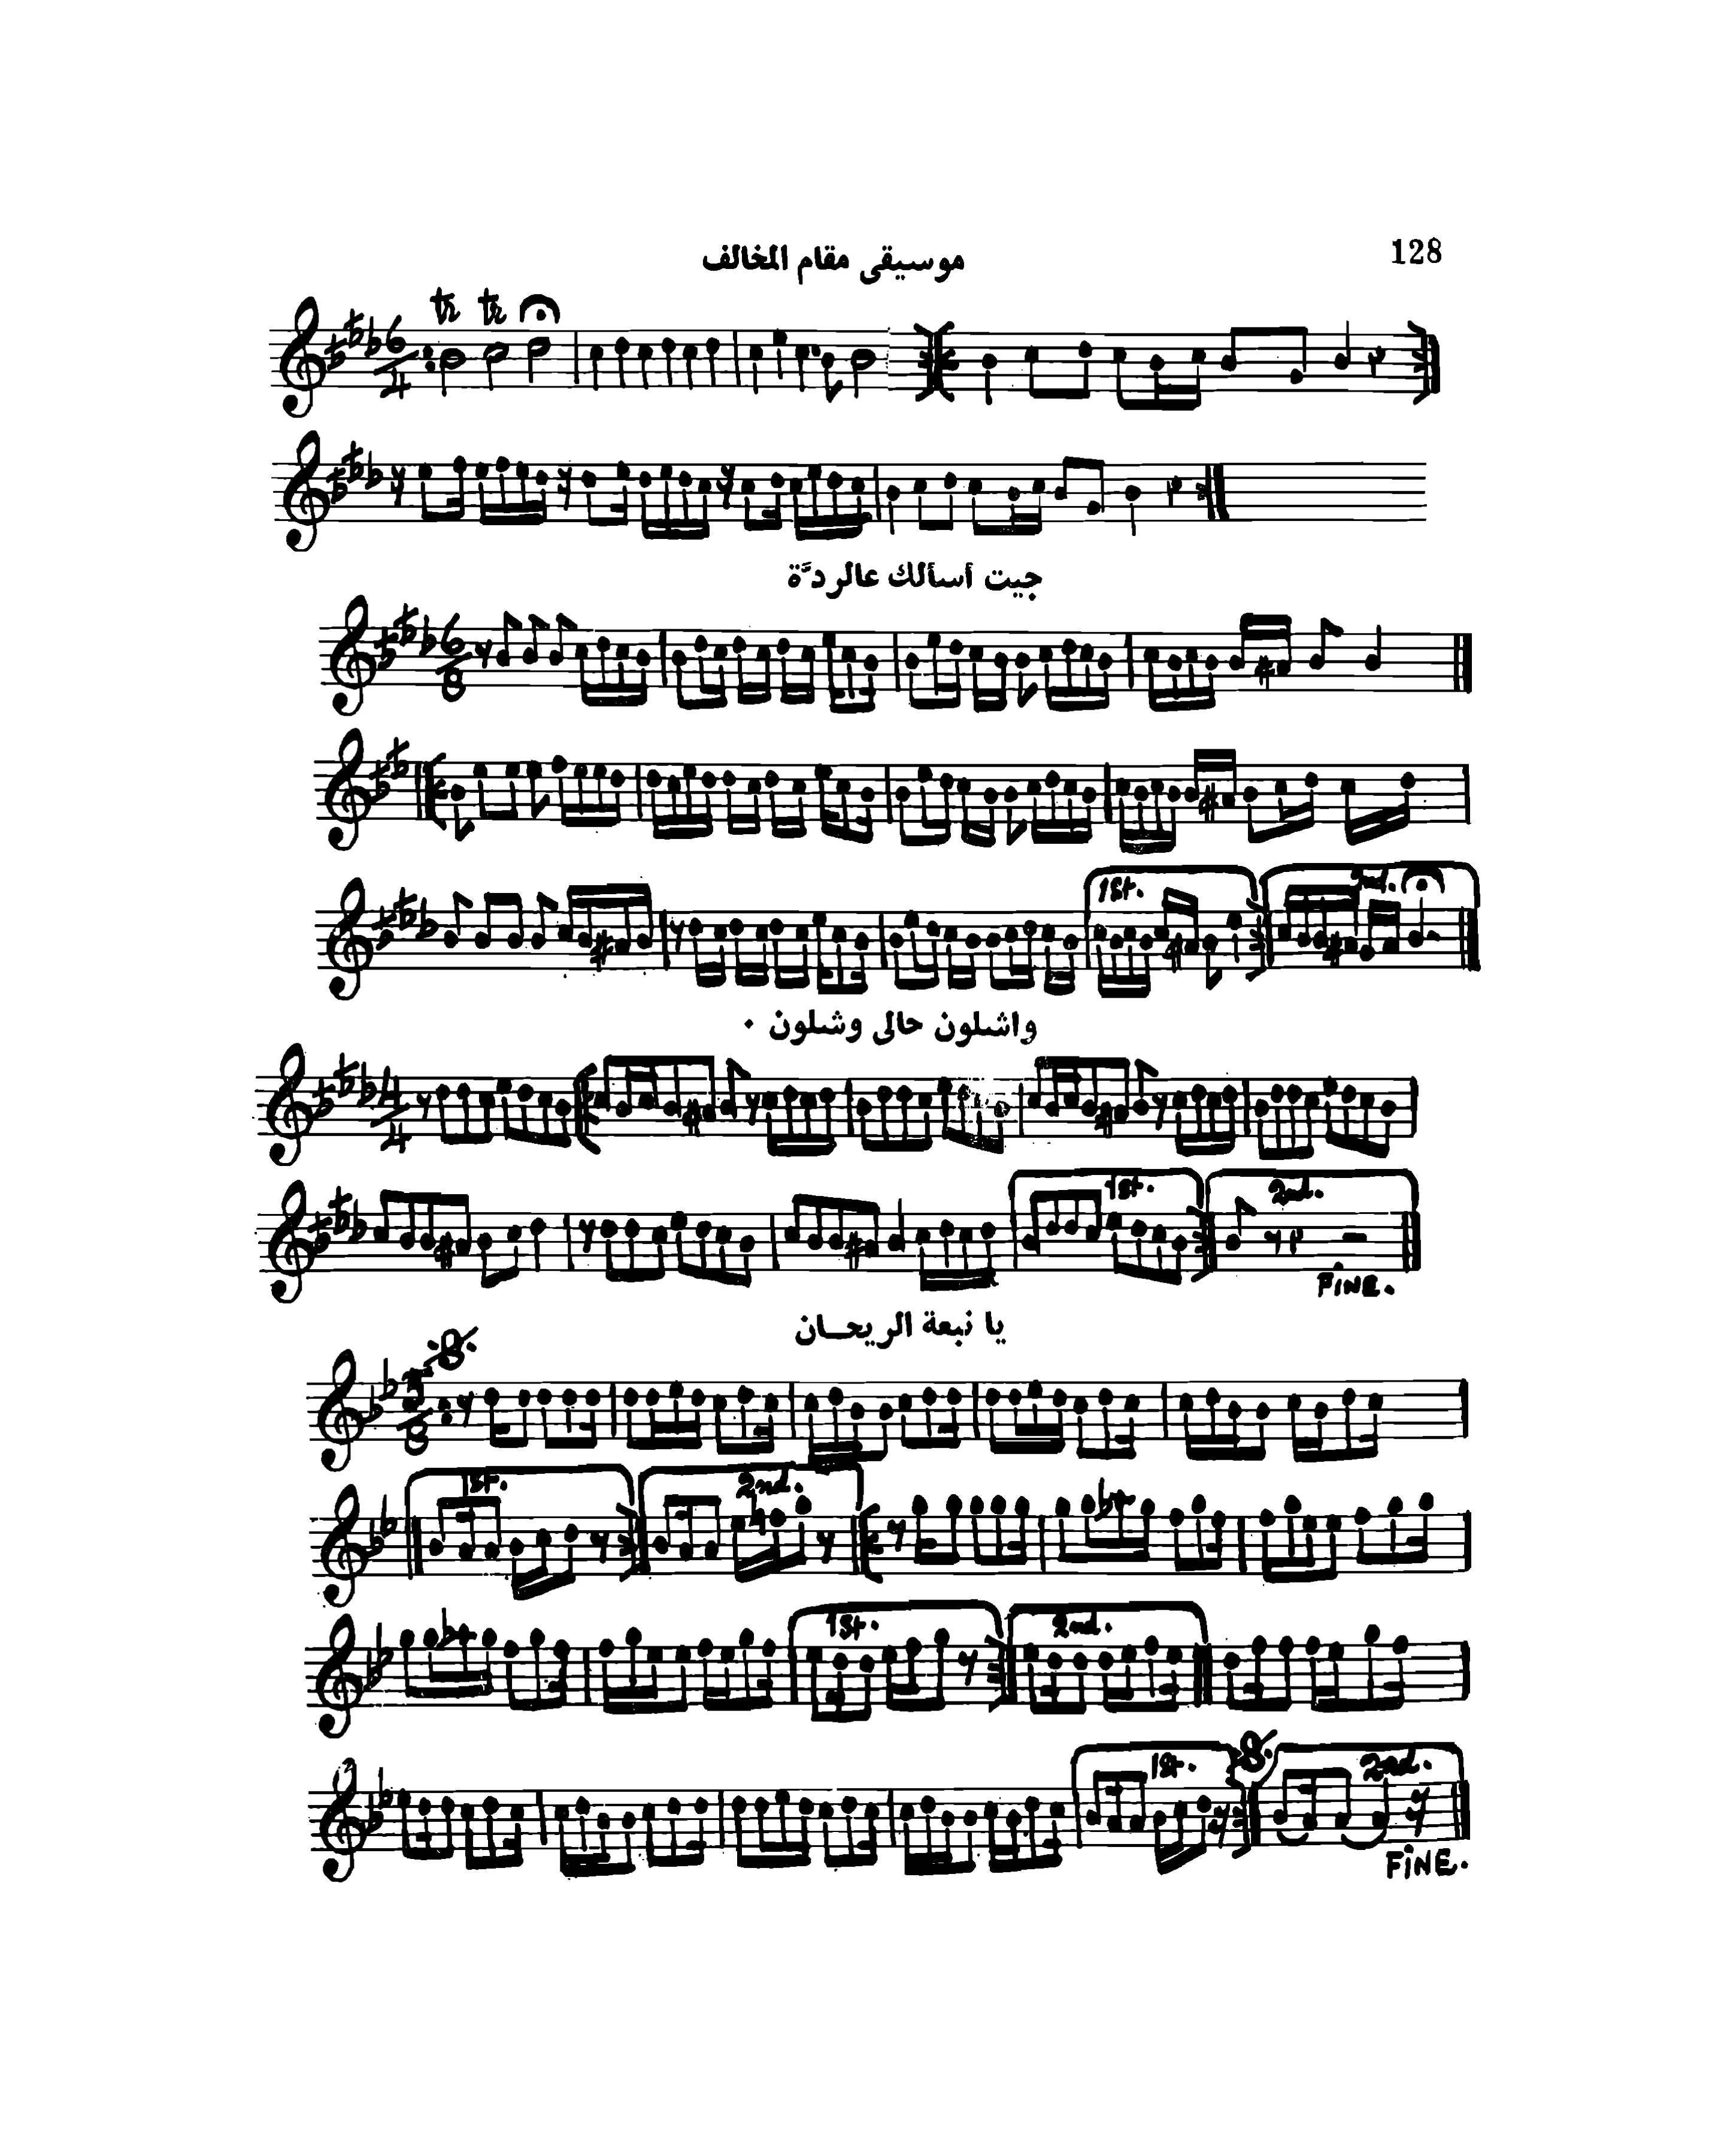 128
موسيقى مقام المخالف
tr tr
6/4
جيت أسألك عالردَّة
6/8
1st. 2nd.
واشلون حالى وشلون ٠
4/4
1st. 2nd.
FINE.
يا نبعة الريحـــان
8
1st. 2nd.
1st. 2nd.
1st. 2nd.
FINE.